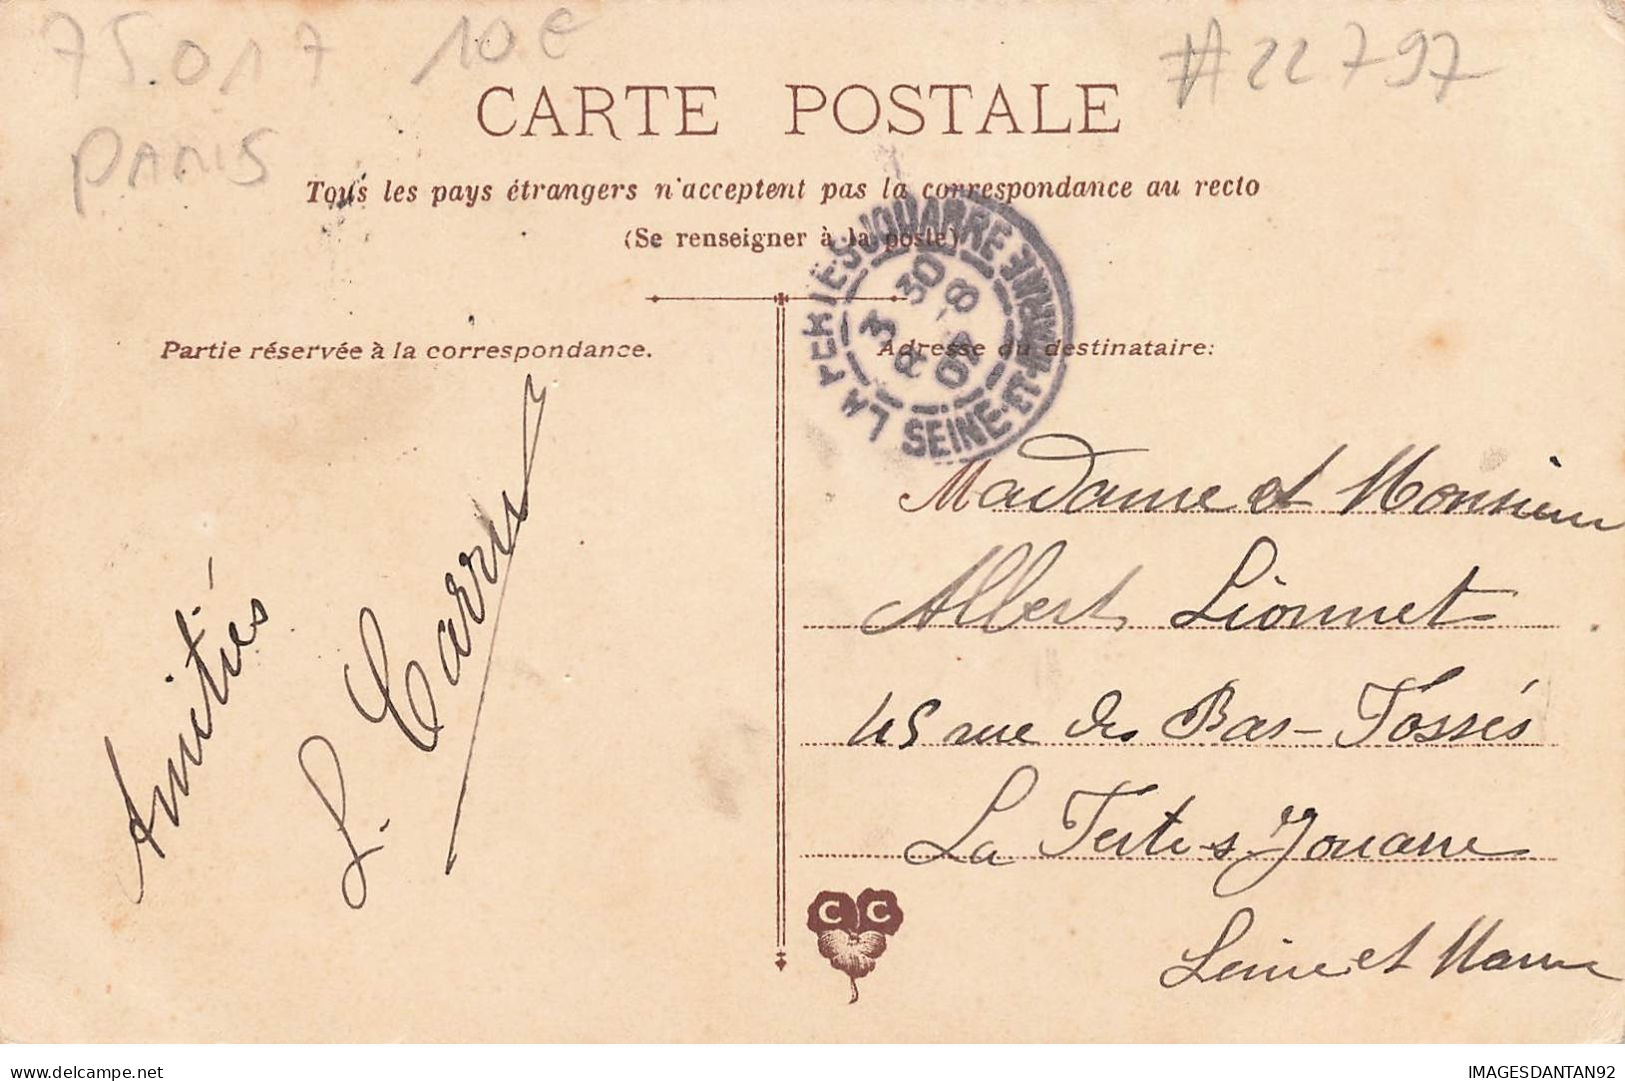 75.017 10€
#22797
PARIS
CARTE POSTALE
Tous les pays étrangers n'acceptent pas la correspondance au recto
(Se renseigner à la poste)
LA FERTÉ-S-JOUARRE SEINE-ET-MARNE
3 30
8 -8
05
Partie réservée à la correspondance.
Adresse du destinataire:
Amitiés
L. Carru
Madame et Monsieur
Albert Lionnet
45 rue des Bas-Fossés
La Ferté s Jouarre
Seine et Marne
C C
delcampe.net
IMAGESDANTAN92